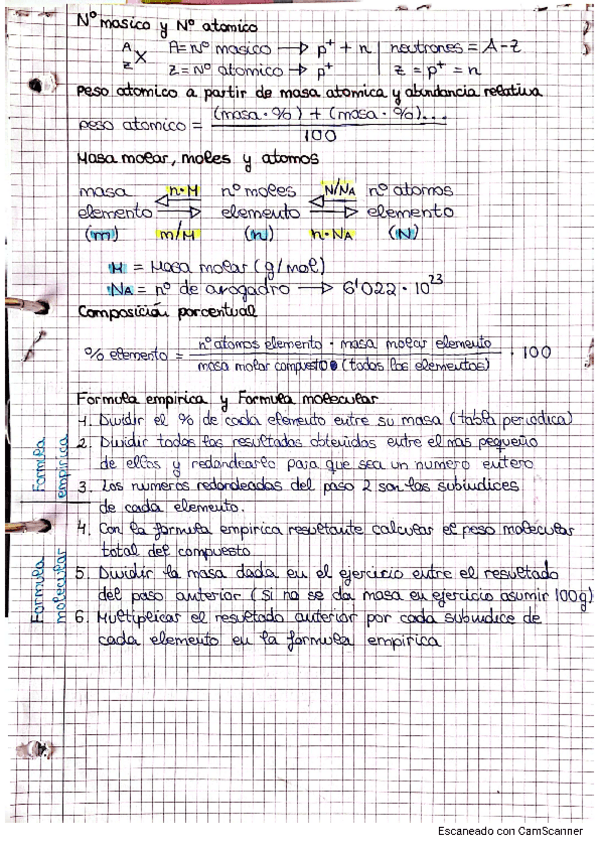 Nº masico y Nº atomico
A
Z X A=nº masico → p⁺ + n | neutrones = A-Z
Z=nº atomico → p⁺ | z = p⁺ = n
Peso atomico a partir de masa atomica y abundancia relativa
peso atomico = (masa · %) + (masa · %)... / 100
Masa molar, moles y atomos
masa n·M nº moles N/NA nº atomos
elemento elemento elemento
(m) m/M (n) n·NA (N)
M = Masa molar (g/mol)
NA = nº de avogadro → 6'022 · 10²³
Composición porcentual
% elemento = nº atomos elemento · masa molar elemento / masa molar compuesto (todos los elementos) · 100
Formula empirica y Formula molecular
Formula empirica
1. Dividir el % de cada elemento entre su masa (tabla periodica)
2. Dividir todos los resultados obtenidos entre el mas pequeño
de ellos y redondearlo para que sea un numero entero
3. Los numeros redondeados del paso 2 son los subindices
de cada elemento.
Formula molecular
4. Con la formula empirica resultante calcular el peso molecular
total del compuesto
5. Dividir la masa dada en el ejercicio entre el resultado
del paso anterior (si no se da masa en ejercicio asumir 100g)
6. Multiplicar el resultado anterior por cada subindice de
cada elemento en la formula empirica
Escaneado con CamScanner